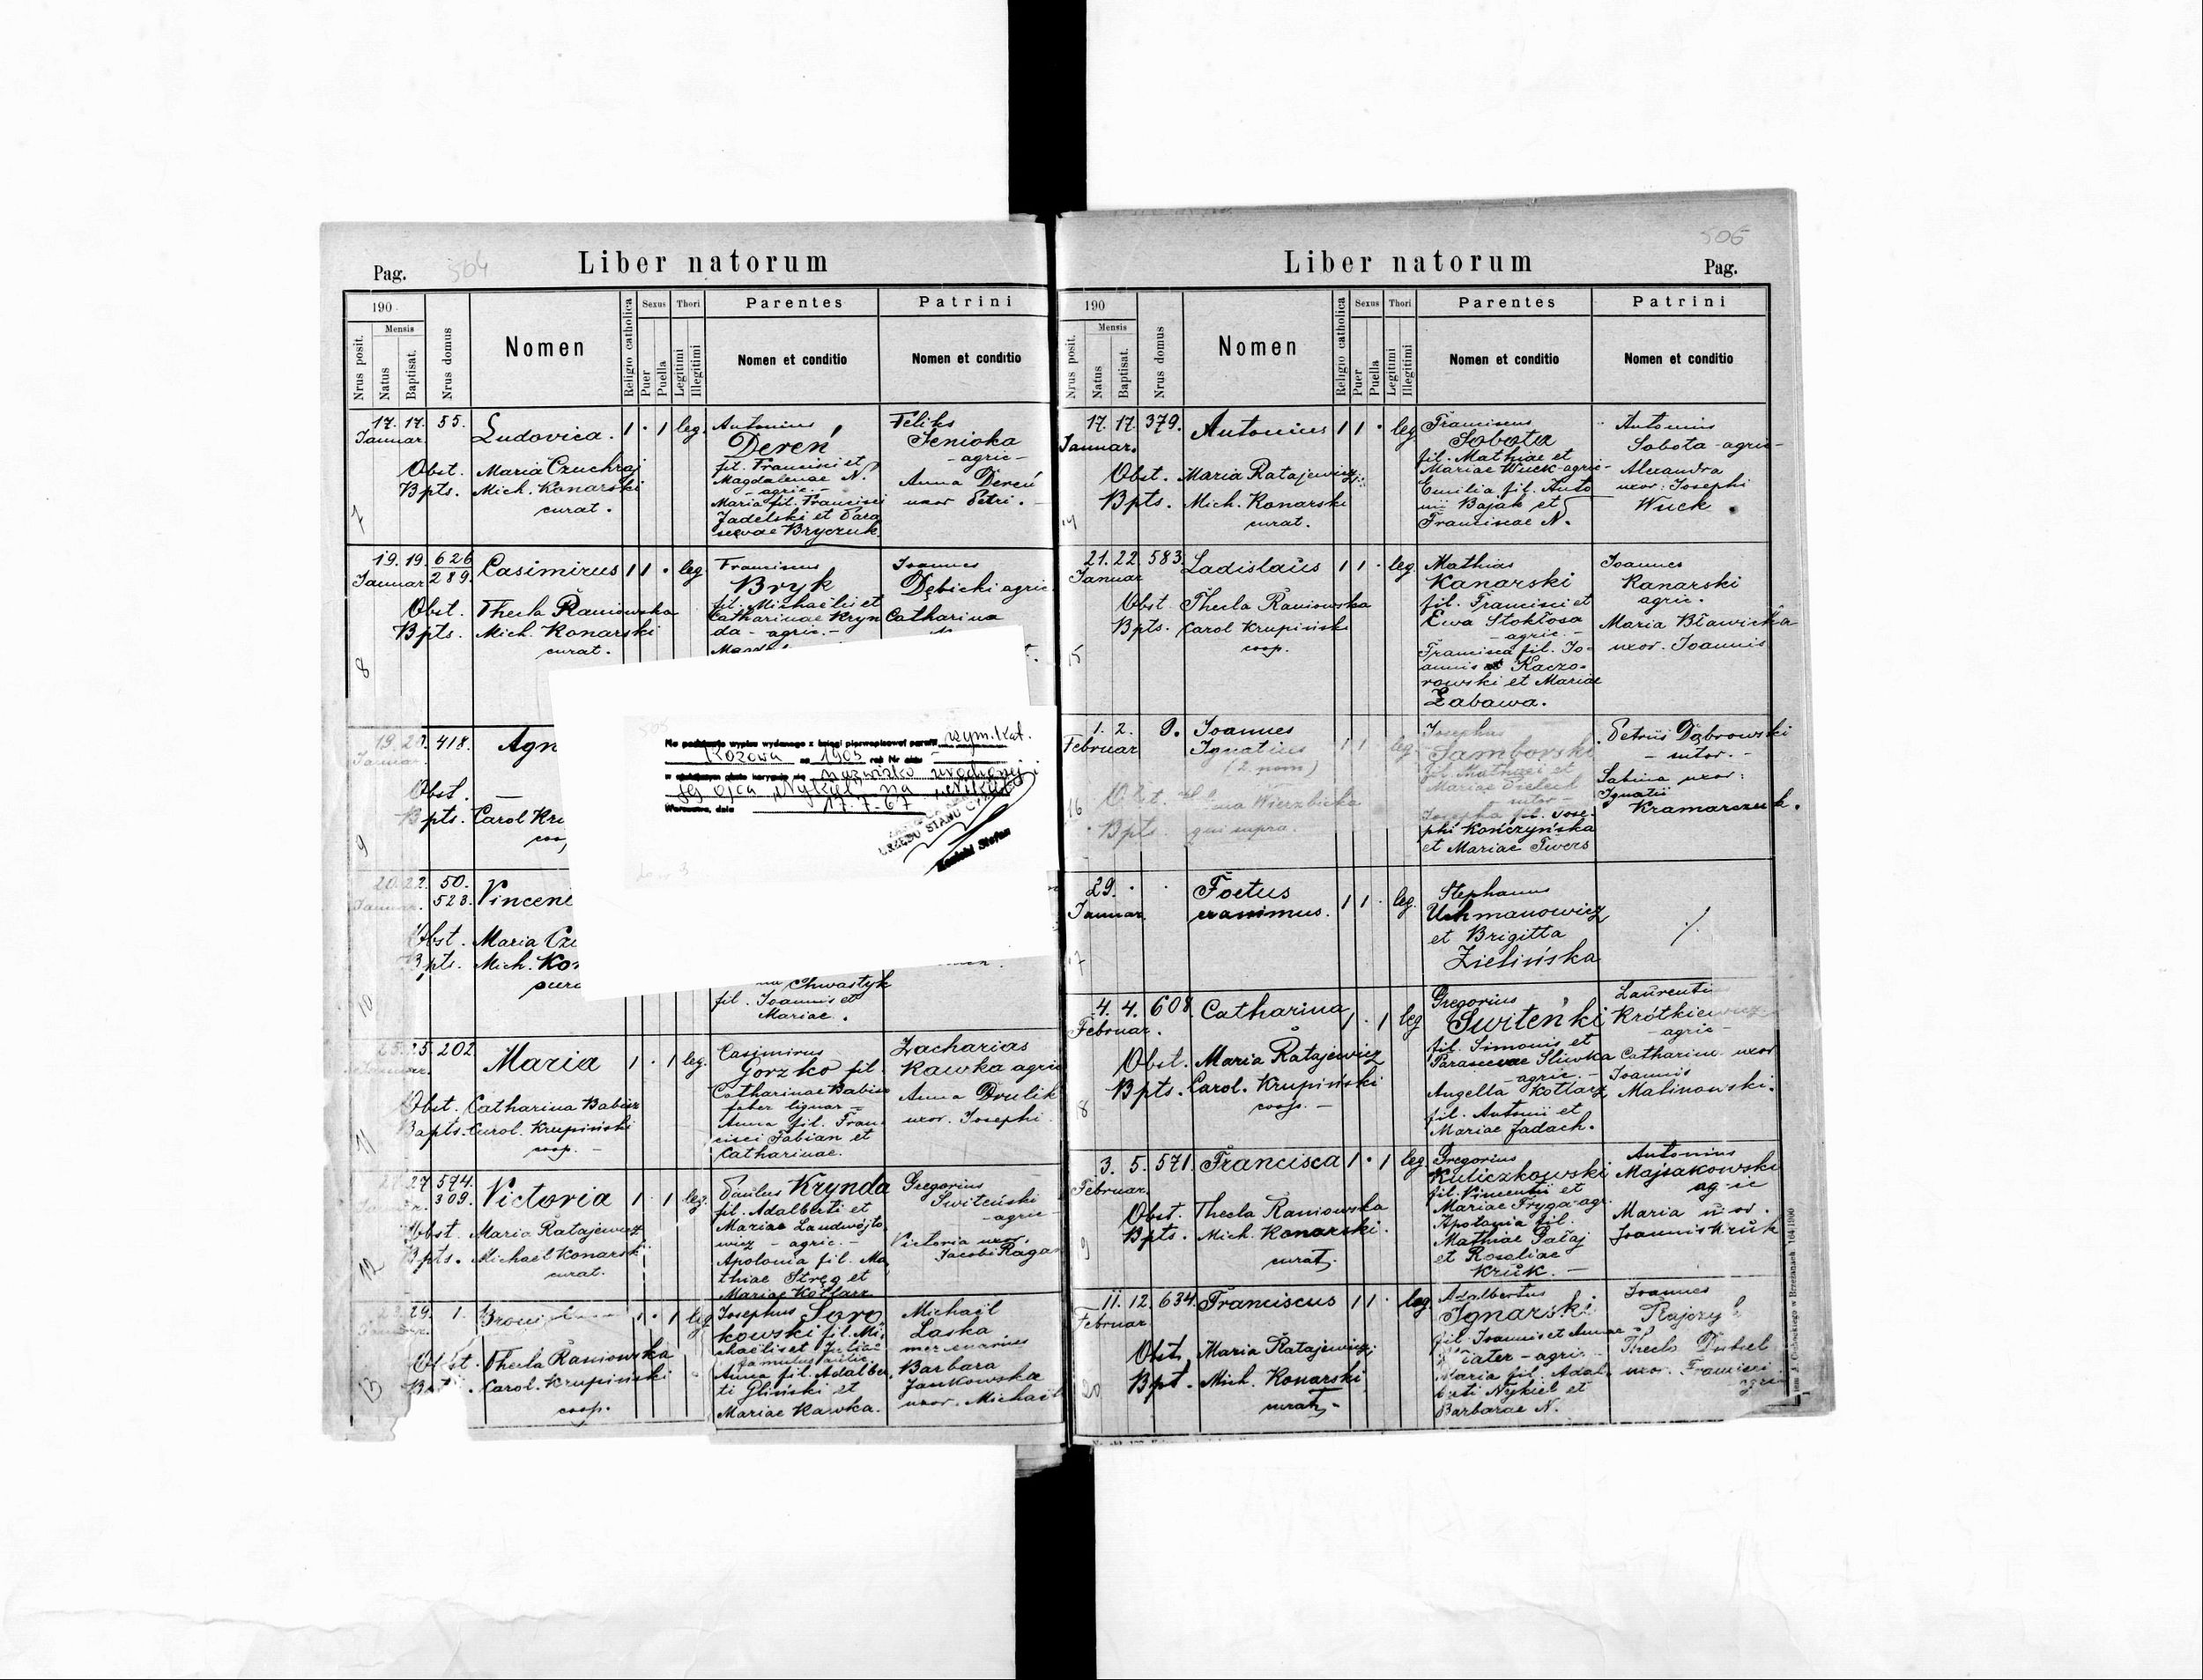 Pag. 504
Liber natorum
190
Nrus posit.
Mensis
Natus
Baptisat.
Nrus domus
Nomen
Religio catholica
Sexus
Puer
Puella
Thori
Legitimi
Illegitimi
Parentes
Nomen et conditio
Patrini
Nomen et conditio
7
17. 17. 55.
Januar.
Ludovica. 1 . 1 leg.
Obst. Maria Czuchraj
Bpts. Mich. Konarski
curat.
Antonius
Dereń
fil. Francisci et
Magdalenae N.
- agric. -
Maria fil. Francisci
Jadelski et Para
scevae Bryczuk.
Feliks
Senioka
- agric -
Anna Dereń
uxor Petri. -
8
19. 19. 626
Januar 289.
Casimirus 1 1 . leg
Obst. Thecla Raniowska
Bpts. Mich. Konarski
curat.
Franciscus
Bryk
fil. Michaelis et
Catharinae Kryn
da - agric. -
Joannes
Dębicki agric.
Catharina
9
19. 20. 418.
Januar.
Agn
Obst. —
Bpts. Carol Kru
10
20. 22. 50.
Januar. 523.
Vincen
Obst. Maria Czu
Bpts. Mich. Kon
Chwastyk
fil. Joannis et
Mariae.
wym. kat.
Kozowa 1905
nazwisko urodzonej i
jej ojca „Nykiel" na
Warszawa, dnia 17.7.67
URZĘDU STANU CYWILNEGO
Stefan
11
25. 25. 202
Maria 1 . 1 leg.
Obst. Catharina Babicz
Bapts. Carol. Krupiński
coop. -
Casimirus
Gorzko fil.
Catharinae Babicz
faber lignar -
Anna fil. Fran
cisci Fabian et
Catharinae.
Zacharias
Kawka agric
Anna Drulik
uxor. Josephi.
12
27. 27 574.
309.
Victoria 1 . 1 leg.
Obst. Maria Ratajewicz
Bpts. Michael Konarski
curat.
Paulus Krynda
fil. Adalberti et
Mariae Landwójto
wicz - agric. -
Apolonia fil. Ma
thiae Stręg et
Mariae Kotlarz
Gregorius
Switeński
- agric -
Victoria uxor.
Jacobi Ragan
13
29. 1.
1 . 1 leg
Obst. Thecla Raniowska
Bpt. Carol. Krupiński
coop.
Josephus Soro
kowski fil. Mi
chaelis et Juliae
famulus
Anna fil. Adalber
ti Gliński et
Mariae Kawka.
Michail
Laska
mercenarius
Barbara
Jankowska
uxor. Michail
506
Liber natorum
Pag.
190
Nrus posit.
Mensis
Natus
Baptisat.
Nrus domus
Nomen
Religio catholica
Sexus
Puer
Puella
Thori
Legitimi
Illegitimi
Parentes
Nomen et conditio
Patrini
Nomen et conditio
14
17. 17. 379.
Januar.
Antonius 1 1 . leg
Obst. Maria Ratajewicz
Bpts. Mich. Konarski
curat.
Franciscus
Sobota
fil. Mathiae et
Mariae Wuck-agric-
Emilia fil. Anto
nii Bajak et
Franciscae N.
Antonius
Sobota - agric -
Alexandra
uxor: Josephi
Wuck.
15
21. 22. 583.
Januar
Ladislaus 1 1 . leg
Obst. Thecla Raniowska
Bpts. Carol Krupiński
coop.
Mathias
Kanarski
fil. Francisci et
Ewa Stokłosa
- agric. -
Francisca fil. Jo-
annis et Kaczo-
rowski et Mariae
Zabawa.
Joannes
Kanarski
agric.
Maria Bławicka
uxor. Joannis
16
1. 2. 0.
Februar
Joannes
Ignatius 1 1 leg
(2. nom)
Obst. Wierzbicka
Bpts. qui supra.
Josephus
Samborski
fil. Mathaei et
- sutor -
Josepha fil. Jose-
phi Kończyńska
et Mariae Siwers
Petrus Dąbrowski
- sutor. -
Sabina uxor:
Ignatii
Kramarczuk.
17
29. . .
Januar
Foetus
exanimus. 1 1 . leg.
Stephanus
Uchmanowicz
et Brigitta
Zielińska
8
4. 4. 608
Februar.
Catharina 1 . 1 leg
Obst. Maria Ratajewicz
Bpts. Carol. Krupiński
coop. -
Gregorius
Switeńki
fil. Simonis et
Parascevae Sliwka
- agric. -
Angella Kotlarz
fil. Antonii et
Mariae Jadach.
Laurenti
Krótkiewicz
- agric -
Catharina uxor
Joannis
Malinowski.
9
3. 5. 571.
Februar.
Francisca 1 . 1 leg
Obst. Thecla Raniowska
Bpts. Mich. Konarski.
curat.
Gregorius
Kuliczkowski
fil. Vincentii et
Mariae Fryga-agr.
Apolonia fil.
Mathiae Pałaj
et Rosaliae
Kruk. -
Antonius
Majsakowski
agric
Maria uxor.
Joannis Kruk
20
11. 12. 634.
Februar
Franciscus 1 1 . leg
Obst. Maria Ratajewicz
Bpt. Mich. Konarski
curat. -
Adalbertus
Ignarski
fil. Joannis et Annae
- agric -
Maria fil. Adal
berti Nykiel et
Barbarae N.
Joannes
Thecla
uxor. Francisci